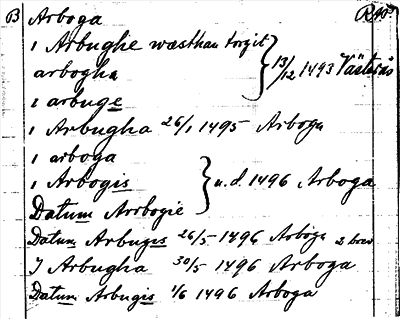 B Arboga R 40
ı Arbughe wæsthan torgit
arbogha } 13/12 1493 Västerås
ı arbuge
ı Arbugha 26/1 1495 Arboga
ı arboga
ı Arbogis } u.d. 1496 Arboga
Datum Arrbogie
Datum Arbugis 26/5 1496 Arboga 2 brev
I Arbugha 30/5 1496 Arboga
Datum Arbugis 1/6 1496 Arboga